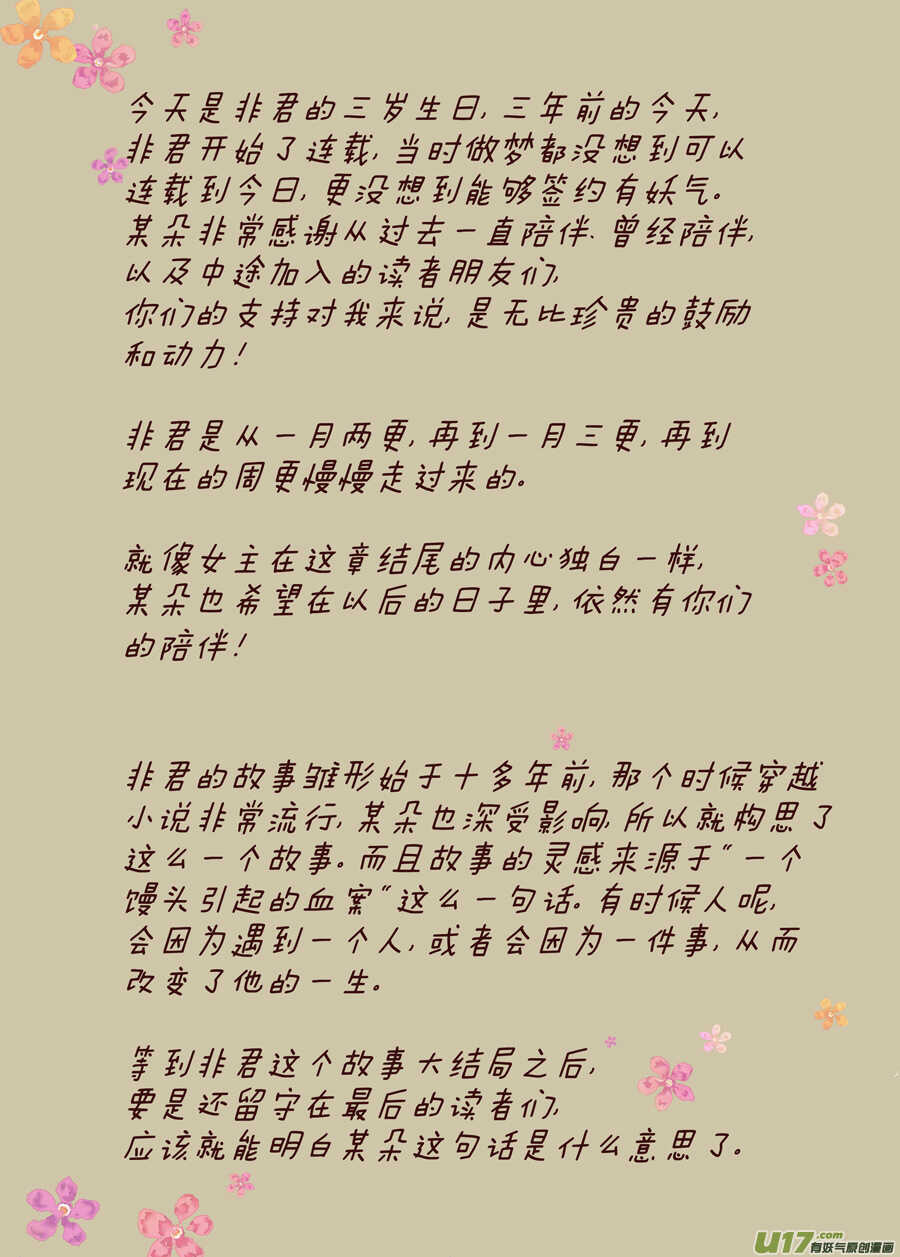 今天是非君的三岁生日,三年前的今天,
非君开始了连载,当时做梦都没想到可以
连载到今日,更没想到能够签约有妖气。
某朵非常感谢从过去一直陪伴、曾经陪伴,
以及中途加入的读者朋友们,
你们的支持对我来说,是无比珍贵的鼓励
和动力!
非君是从一月两更,再到一月三更,再到
现在的周更慢慢走过来的。
就像女主在这章结尾的内心独白一样,
某朵也希望在以后的日子里,依然有你们
的陪伴!
非君的故事雏形始于十多年前,那个时候穿越
小说非常流行,某朵也深受影响,所以就构思了
这么一个故事。而且故事的灵感来源于“一个
馒头引起的血案“这么一句话。有时候人呢,
会因为遇到一个人,或者会因为一件事,从而
改变了他的一生。
等到非君这个故事大结局之后,
要是还留守在最后的读者们,
应该就能明白某朵这句话是什么意思了。
U17.com
有妖气原创漫画